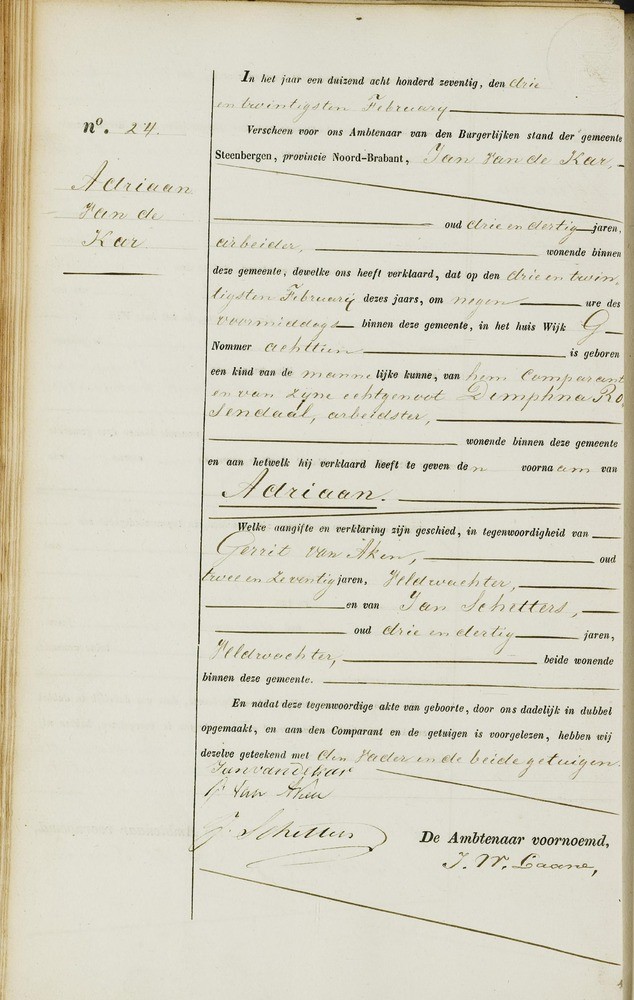 In het jaar een duizend acht honderd zeventig, den drie
en twintigsten February
Verscheen voor ons Ambtenaar van den Burgerlijken stand der gemeente
Steenbergen, provincie Noord-Brabant, Jan Van de Kar,
oud drie en dertig jaren,
arbeider, wonende binnen
deze gemeente, dewelke ons heeft verklaard, dat op den drie en twin-
tigsten February dezes jaars, om negen ure des
voormiddags binnen deze gemeente, in het huis Wijk G
Nommer achttien is geboren
een kind van de mannelijke kunne, van hem Comparant
en van zyne echtgenoot Dimphna Ro
sendaal, arbeidster,
wonende binnen deze gemeente
en aan hetwelk hij verklaard heeft te geven den voornaam van
Adriaan.
Welke aangifte en verklaring zijn geschied, in tegenwoordigheid van
Gerrit van Aken, oud
twee en zeventig jaren, Veldwachter,
en van Jan Schetters,
oud drie en dertig jaren,
Veldwachter, beide wonende
binnen deze gemeente.
En nadat deze tegenwoordige akte van geboorte, door ons dadelijk in dubbel
opgemaakt, en aan den Comparant en de getuigen is voorgelezen, hebben wij
dezelve geteekend met den Vader en de beide getuigen.
Jan van de Kar
G Van Aken
J. Schetters
De Ambtenaar voornoemd,
J. W. Laane,
no. 24.
Adriaan
Van de
Kar